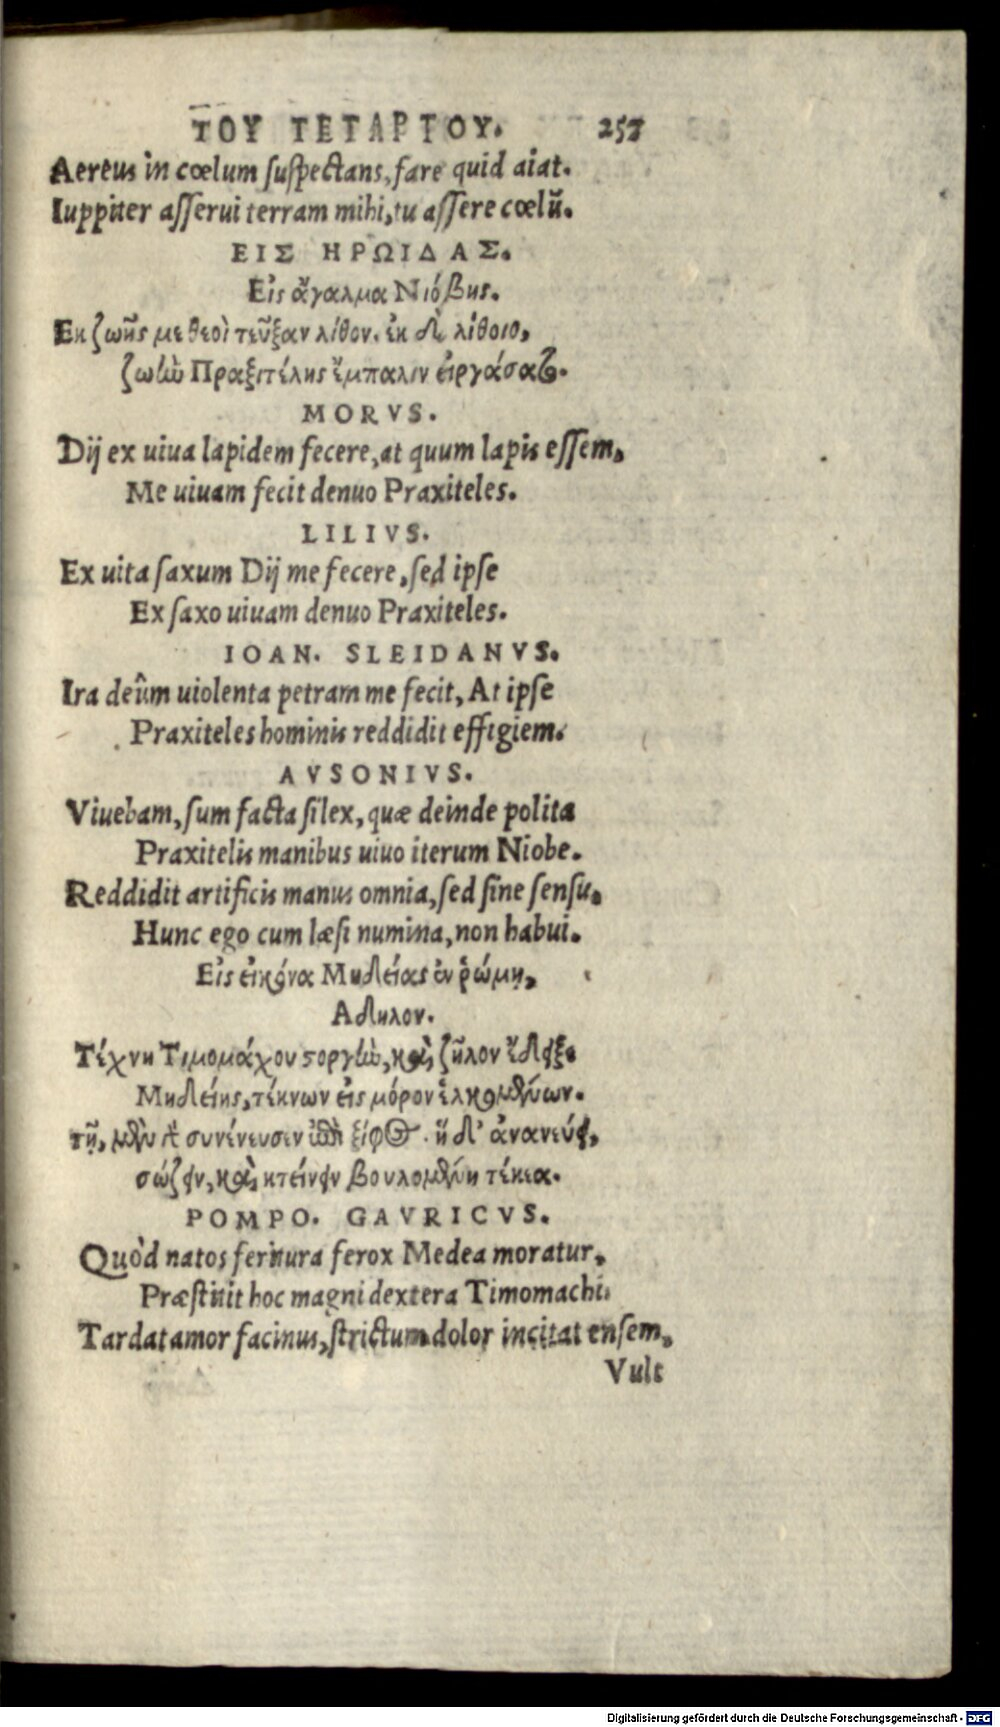 ΤΟΥ ΤΕΤΑΡΤΟΥ. 257
Aereus in cœlum ſuſpectans, fare quid aiat.
Iuppiter aſſerui terram mihi, tu aſſere cœlū.
ΕΙΣ ΗΡΩΙΔΑΣ.
Εἰς ἄγαλμα Νιόβης.
Εκ ζωῆς με θεοὶ τεῦξαν λίθον. ἐκ δὲ λίθοιο,
ζωὴν Πραξιτέλης ἔμπαλιν εἰργάσατο.
MORVS.
Dij ex uiua lapidem fecere, at quum lapis eſſem,
Me uiuam fecit denuo Praxiteles.
LILIVS.
Ex uita ſaxum Dij me fecere, ſed ipſe
Ex ſaxo uiuam denuo Praxiteles.
IOAN. SLEIDANVS.
Ira deûm uiolenta petram me fecit, At ipſe
Praxiteles hominis reddidit effigiem.
AVSONIVS.
Viuebam, ſum facta ſilex, quæ deinde polita
Praxitelis manibus uiuo iterum Niobe.
Reddidit artificis manus omnia, ſed ſine ſenſu.
Hunc ego cum læſi numina, non habui.
Εἰς εἰκόνα Μηδείας ἐν ῥώμῃ,
Αδηλον.
Τέχνη Τιμομάχου στοργὴν, καὶ ζῆλον ἔδειξε
Μηδείης, τέκνων εἰς μόρον ἑλκομένων.
τῇ, μὲν γὰρ συνένευσεν ἐπὶ ξίφος. ἣ δ' ἀνανεύει,
σώζειν, καὶ κτείνειν βουλομένη τέκεα.
POMPO. GAVRICVS.
Quòd natos feritura ferox Medea moratur,
Præſtitit hoc magni dextera Timomachi.
Tardat amor facinus, ſtrictum dolor incitat enſem,
Vult
Digitalisierung gefördert durch die Deutsche Forschungsgemeinschaft - DFG